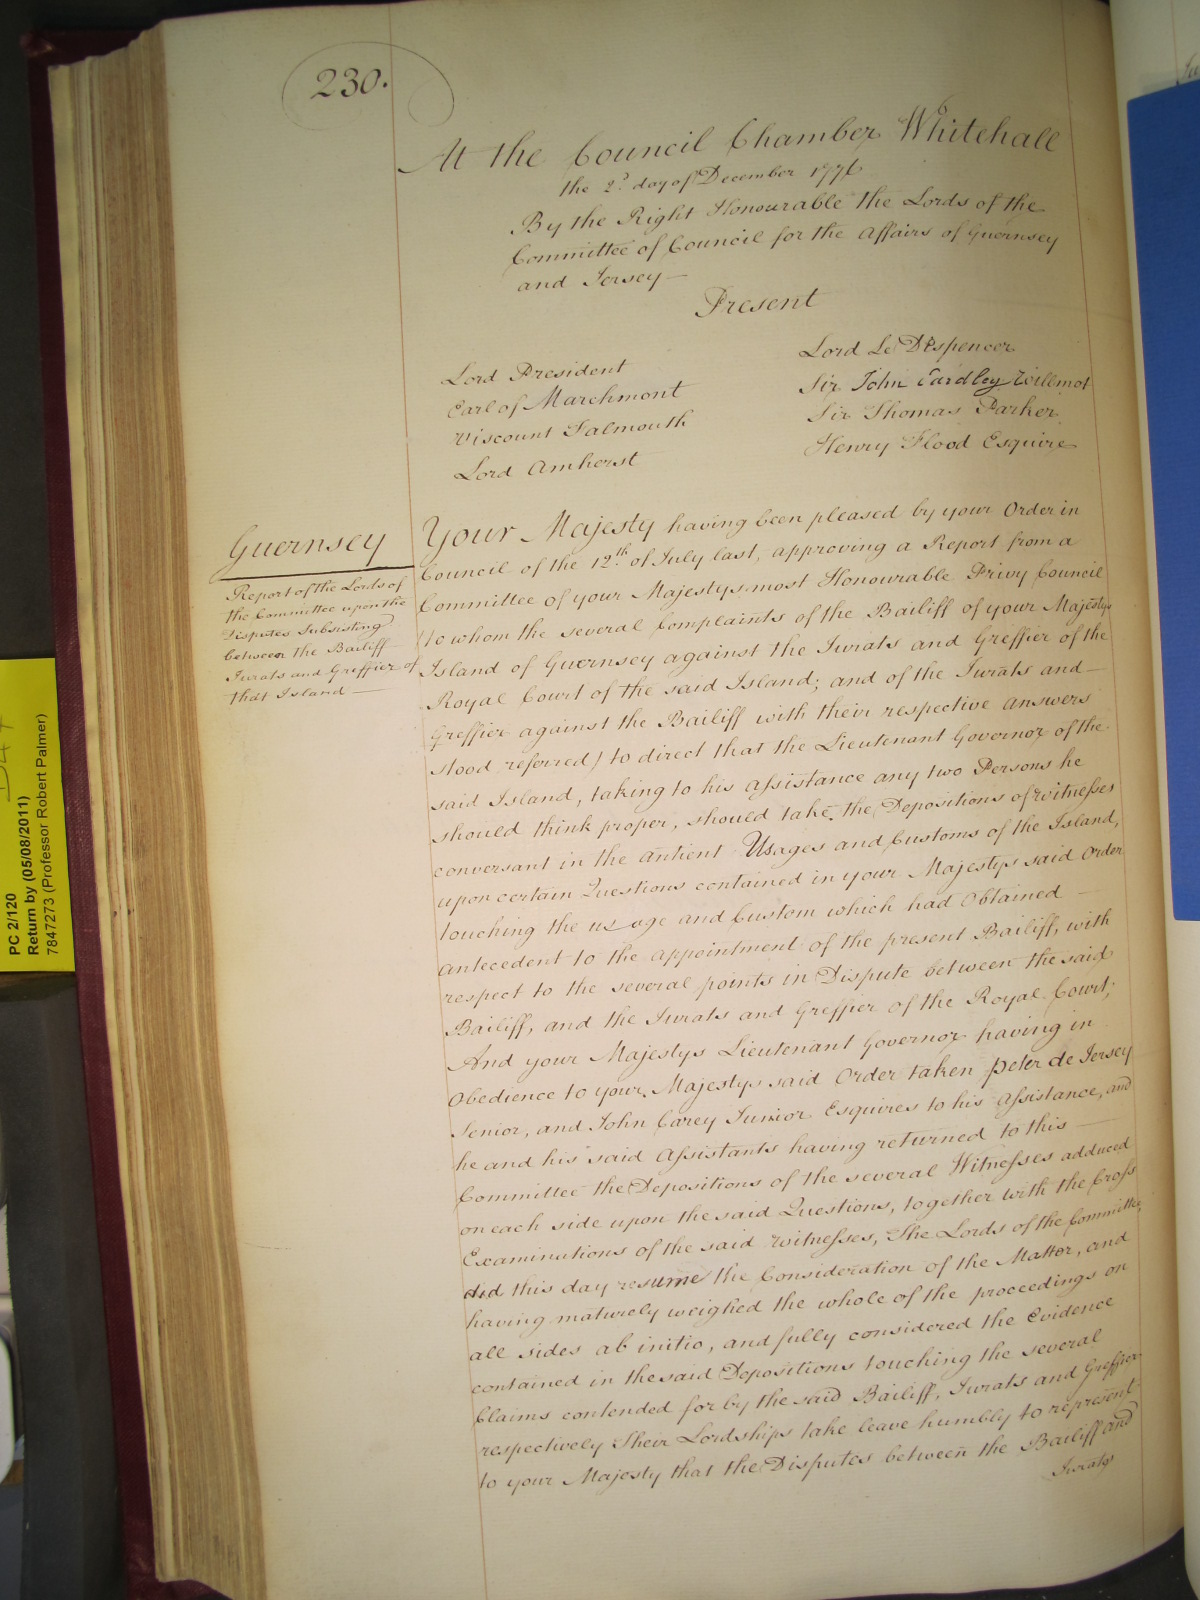 230.
At the Council Chamber Whitehall
the 2d. day of December 1776
By the Right Honourable the Lords of the
Committee of Council for the Affairs of Guernsey
and Jersey—
Present
Lord President
Earl of Marchmont
Viscount Falmouth
Lord Amherst
Lord Le Dispencer
Sir John Eardley Willmot
Sir Thomas Parker
Henry Flood Esquire
Guernsey
Report of the Lords of
the Committee upon the
Disputes Subsisting
between the Bailiff
Jurats and Greffier of
that Island—
Your Majesty having been pleased by your Order in
Council of the 12th. of July last, approving a Report from a
Committee of your Majestys most Honourable Privy Council
(to whom the several Complaints of the Bailiff of your Majestys
Island of Guernsey against the Jurats and Greffier of the
Royal Court of the said Island; and of the Jurats and—
Greffier against the Bailiff with their respective Answers
stood referred) to direct that the Lieutenant Governor of the
said Island, taking to his Assistance any two Persons he
should think proper, should take the Depositions of Witnesses
conversant in the antient Usages and Customs of the Island,
upon certain Questions contained in your Majestys said Order
touching the usage and Custom which had obtained—
antecedent to the appointment of the present Bailiff, with
respect to the several points in Dispute between the said
Bailiff, and the Jurats and Greffier of the Royal Court;
And your Majestys Lieutenant Governor having in
Obedience to your Majestys said Order taken Peter de Jersey
Senior, and John Carey Junior Esquires to his Assistance, and
he and his said Assistants having returned to this—
Committee the Depositions of the several Witnesses adduced
on each side upon the said Questions, together with the Cross
Examinations of the said Witnesses, The Lords of the Committee,
did this day resume the Consideration of the Matter, and
having maturely weighed the whole of the proceedings on
all sides ab initio, and fully considered the Evidence
contained in the said Depositions touching the several
Claims contended for by the said Bailiff, Jurats and Greffier
respectively Their Lordships take leave humbly to represent
to your Majesty that the Disputes between the Bailiff and
Jurats
PC 2/120
Return by (05/08/2011)
7847273 (Professor Robert Palmer)